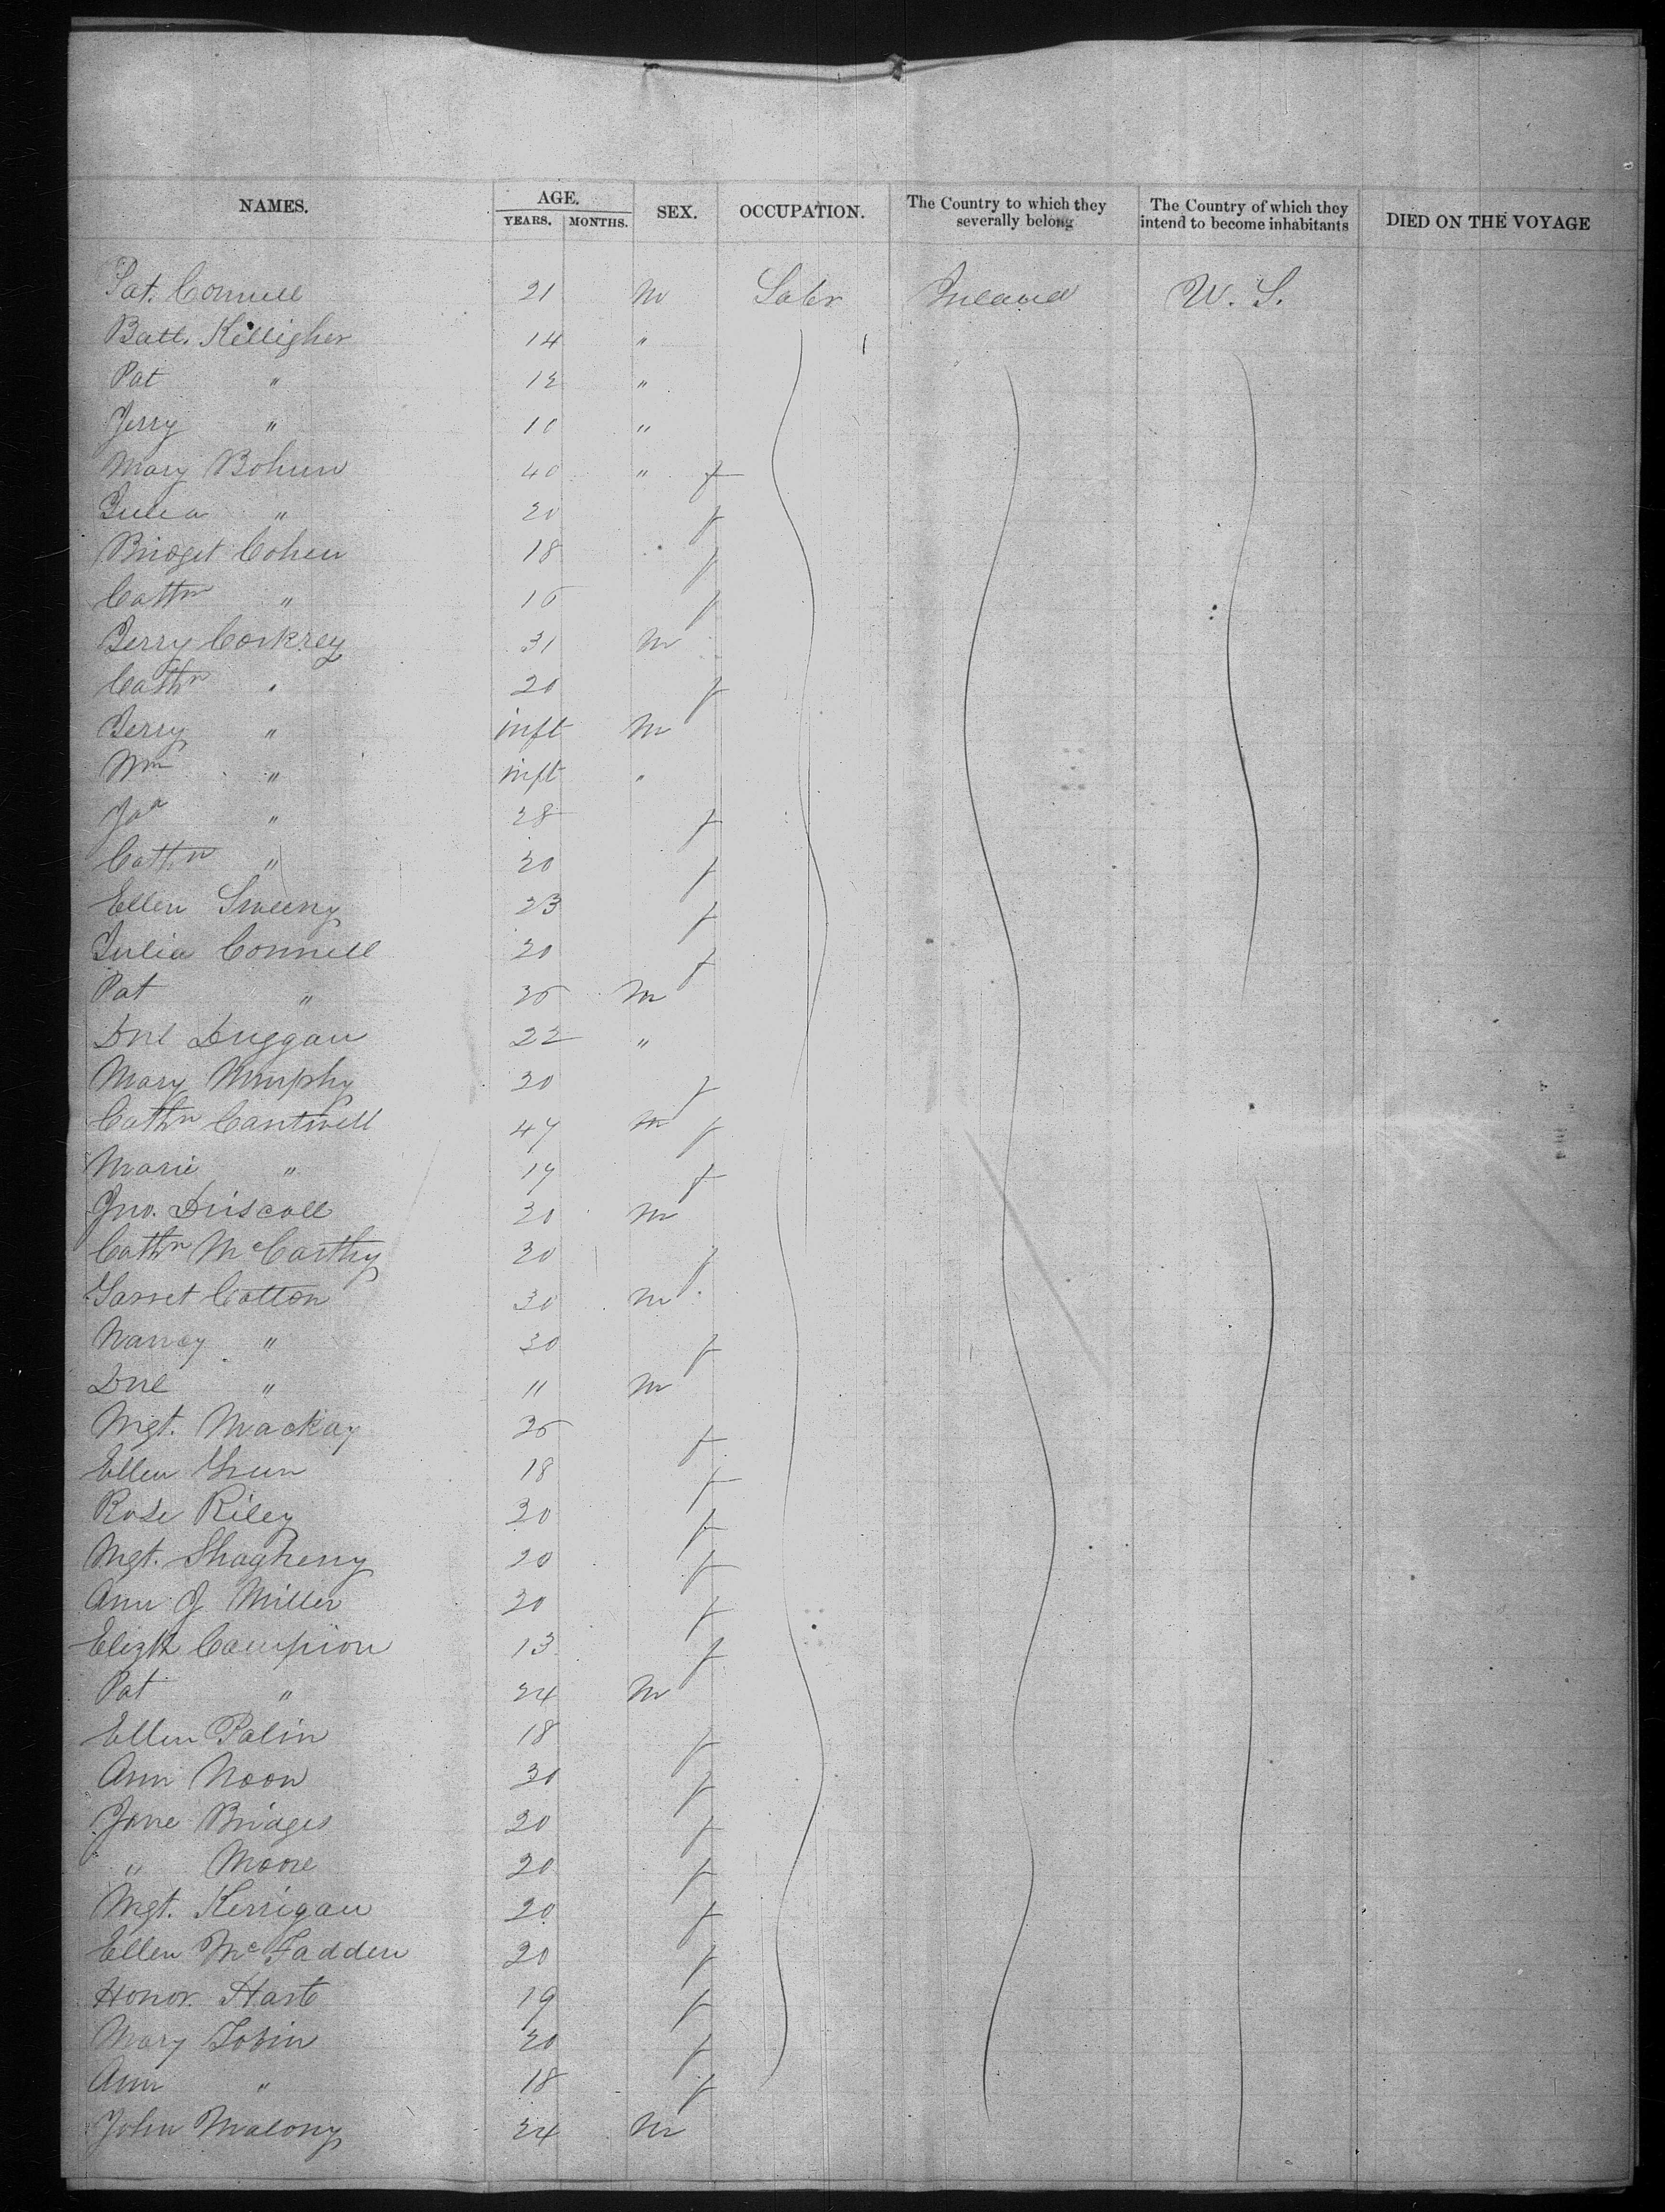 NAMES. AGE. YEARS. MONTHS. SEX. OCCUPATION. The Country to which they severally belong The Country of which they intend to become inhabitants DIED ON THE VOYAGE
Pat. Connell 21 M Labr Ireland U. S.
Batt. Killigher 14 "
Pat " 12 "
Jerry " 10 "
Mary Bohun 40 " f
Julia " 20 f
Bridget Cohen 18 f
Cathn " 16 f
Jerry Corkrey 31 M
Cathn " 20 f
Jerry " inft M
Wm " inft "
Joa " 28 f
Cathn " 20 f
Ellen Sweeny 23 f
Julia Connell 20 f
Pat " 36 M
Dnl Duggan 22 "
Mary Murphy 20 f
Cathn Cantwell 47 M f
Marie " 17 f
Jno. Driscoll 20 M
Cathn McCarthy 20 f
Garret Cotton 30 M
Nancy " 30 f
Dnl " 11 M
Mgt. Mackay 26 f
Ellen Green 18 f
Rose Riley 20 f
Mgt. Shagheny 20 f
Ann J Miller 20 f
Elizth Campion 13 f
Pat " 24 M
Ellen Palin 18 f
Ann Noon 30 f
Jane Bridges 20 f
" Moore 20 f
Mgt. Kerrigan 20 f
Ellen McFadden 20 f
Honor Hart 19 f
Mary Tobin 20 f
Ann " 18 f
John Malony 24 M